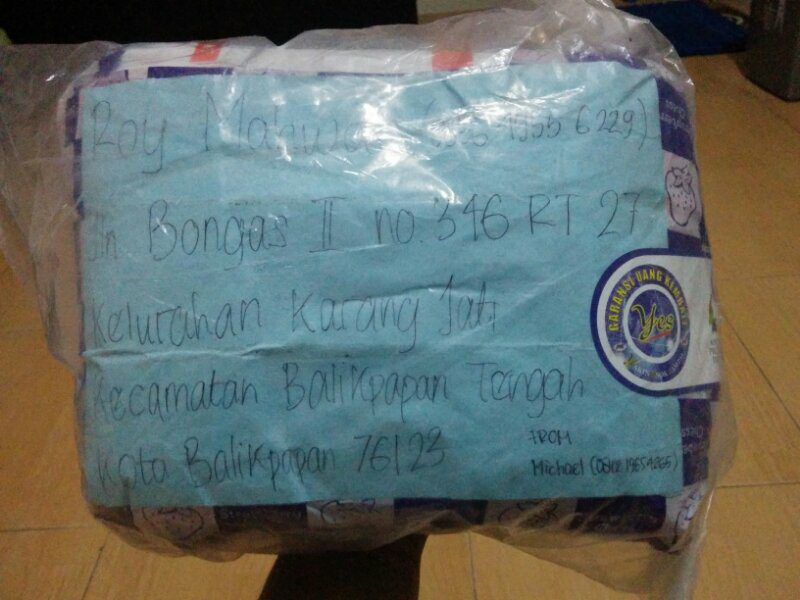 Roy
6229)
Jln Bongas II no.346 RT 27
Kelurahan Karang Jati
Kecamatan Balikpapan Tengah
Kota Balikpapan 76123
FROM
Michael
GARANSI UANG KEMBALI
Yes